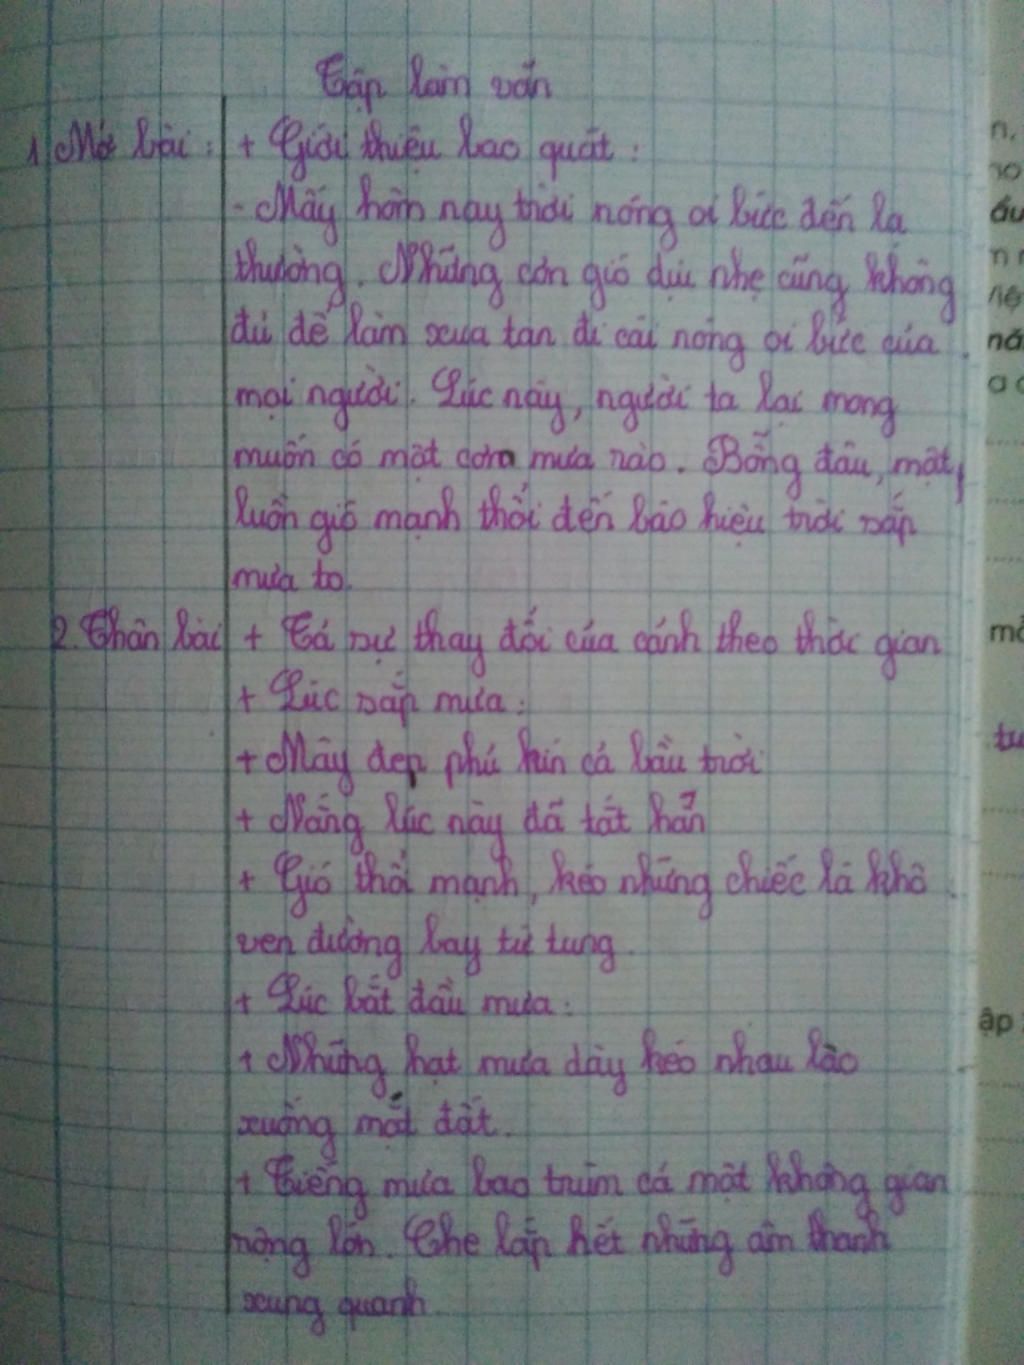 Tập làm văn
1. Mở bài: + Giới thiệu bao quát:
- Mấy hôm nay trời nóng oi bức đến lạ
thường. Những cơn gió dịu nhẹ cũng không
đủ để làm xua tan đi cái nóng oi bức của
mọi người. Lúc này, người ta lại mong
muốn có một cơn mưa rào. Bỗng đâu, một
luồn gió mạnh thổi đến báo hiệu trời sắp
mưa to.
2. Thân bài + Tả sự thay đổi của cảnh theo thời gian
+ Lúc sắp mưa:
+ Mây đẹp phủ kín cả bầu trời
+ Nắng lúc này đã tắt hẳn
+ Gió thổi mạnh, kéo những chiếc lá khô
ven đường bay tứ tung.
+ Lúc bắt đầu mưa:
+ Những hạt mưa dày kéo nhau lào
xuống mặt đất.
+ Tiếng mưa bao trùm cả một không gian
rộng lớn. Che lấp hết những âm thanh
xung quanh.